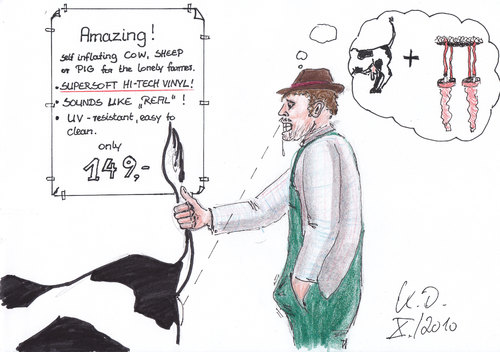 Amazing!
self inflating COW, SHEEP
or PIG for the lonely farmer.
• SUPERSOFT HI-TECH VINYL!
• SOUNDS LIKE „REAL"!
• UV-resistant, easy to
clean.
only
149,-
K.D.
X./2010